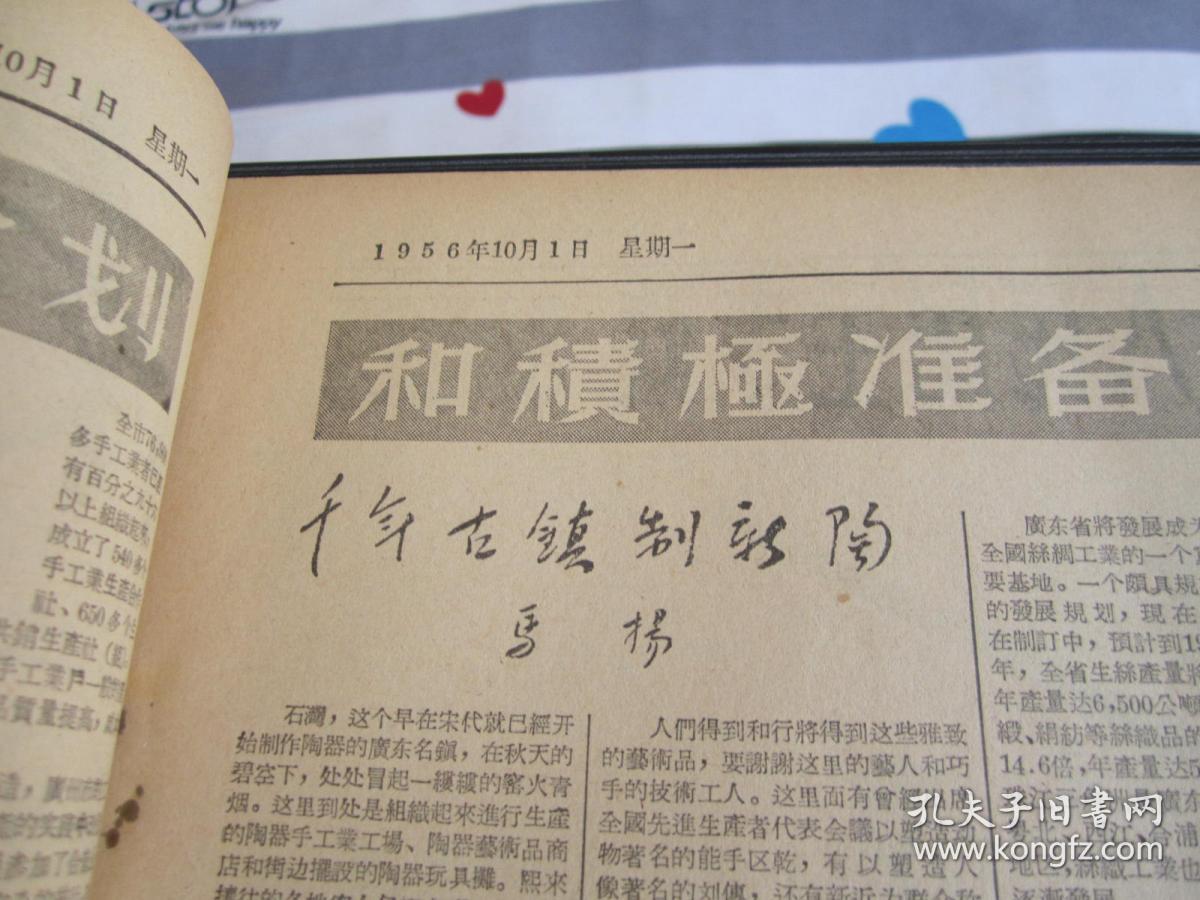 10月1日 星期一
划
全市76,
多手工業者已
有百分之九十
以上組織起來
成立了540多个
手工業生產合作
社、650多个
供銷生產社(
手工業戶一般
品質量提高,
1956年10月1日 星期一
和積極准备
千年古鎮制新陶
馬楊
石灣,这个早在宋代就已經开
始制作陶器的廣东名鎮,在秋天的
碧空下,处处冒起一縷縷的窰火青
烟。这里到处是組織起來進行生產
的陶器手工業工場、陶器藝術品商
店和街边擺設的陶器玩具攤。熙來
攘往的各地客人
人們得到和行將得到这些雅致
的藝術品,要謝謝这里的藝人和巧
手的技術工人。这里面有曾經出席
全國先進生產者代表会議以塑造动
物著名的能手区乾,有以塑造人
像著名的刘傳,还有新近为群众称
廣东省將發展成为
全國絲綢工業的一个
要基地。一个頗具規
的發展規划,現在
在制訂中,預計到19
年,全省生絲產量將
年產量达6,500公噸
緞、絹紡等絲織品的
14.6倍,年產量达5
地区,絲織工業也
逐漸發展
孔夫子旧書网